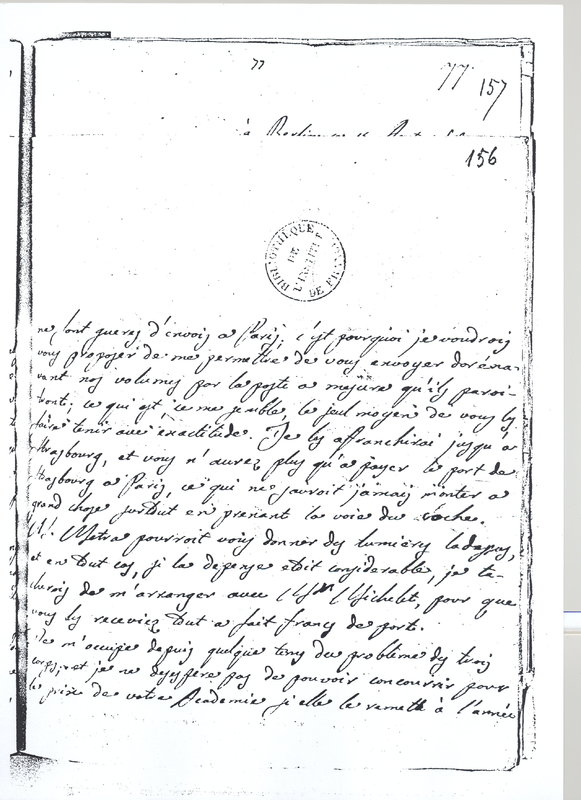 77
77 157
à Berlin
156
BIBLIOTHEQUE
DE
L'INSTITUT
DE FRANCE
ne font guères d'envois à Paris, c'est pourquoi je voudrois
vous proposer de me permettre de vous envoyer doréna-
vant nos volumes par la poste à mesure qu'ils paroi-
tront; ce qui est, ce me semble, le seul moyen de vous les
faire tenir avec exactitude. Je les affranchirai jusqu'à
Strasbourg, et vous n'aurez plus qu'à payer le port de
Strasbourg à Paris, ce qui ne sauroit jamais monter à
grand chose surtout en prenant la voie du coche.
M. Metra pourroit vous donner des lumieres ladessus,
et en tout cas, si la depense etoit considerable, je ta-
cherois de m'arranger avec Mrs Michelet, pour que
vous les receviez tout a fait francs de porte.
Je m'occupe depuis quelque tems du problème des trois
corps, et je ne desespere pas de pouvoir concourrir pour
le prix de votre Academie si elle le remett à l'année